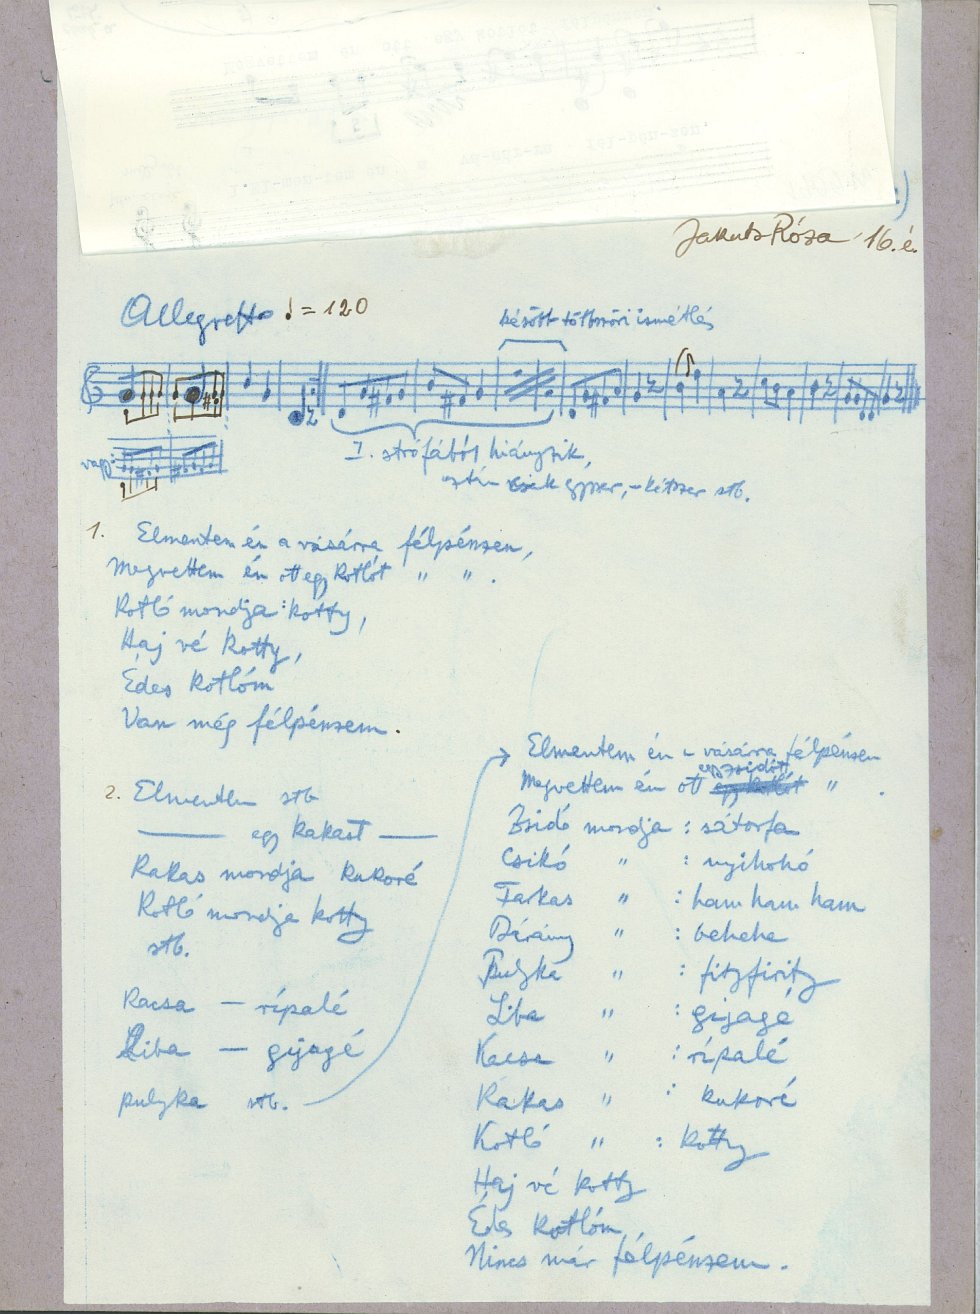 Jakab Róza 16. é.
Allegretto ♩ = 120
később többszöri ismétlés
vagy:
I. strófából hiányzik,
aztán csak egyszer, - kétszer stb.
1. Elmentem én a vásárra félpénzen,
Megvettem én ott egy kotlót " " .
Kotló mondja: kotty,
Haj vé kotty,
Édes kotlóm
Van még félpénzem.
2. Elmentem stb
egy kakast
Kakas mondja kukoré
Kotló mondja kotty
stb.
Kacsa — rípalé
Liba — gijagé
pulyka stb.
Elmentem én a vásárra félpénzen
egy zsidót
Megvettem én ott egy kotlót " .
Zsidó mondja : sátorfa
Csikó " : nyihohó
Farkas " : ham ham ham
Bárány " : behehe
Pulyka " : fityfirity
Liba " : gijagé
Kacsa " : rípalé
Kakas " : kukoré
Kotló " : kotty
Haj vé kotty
Édes kotlóm,
Nincs már félpénzem.